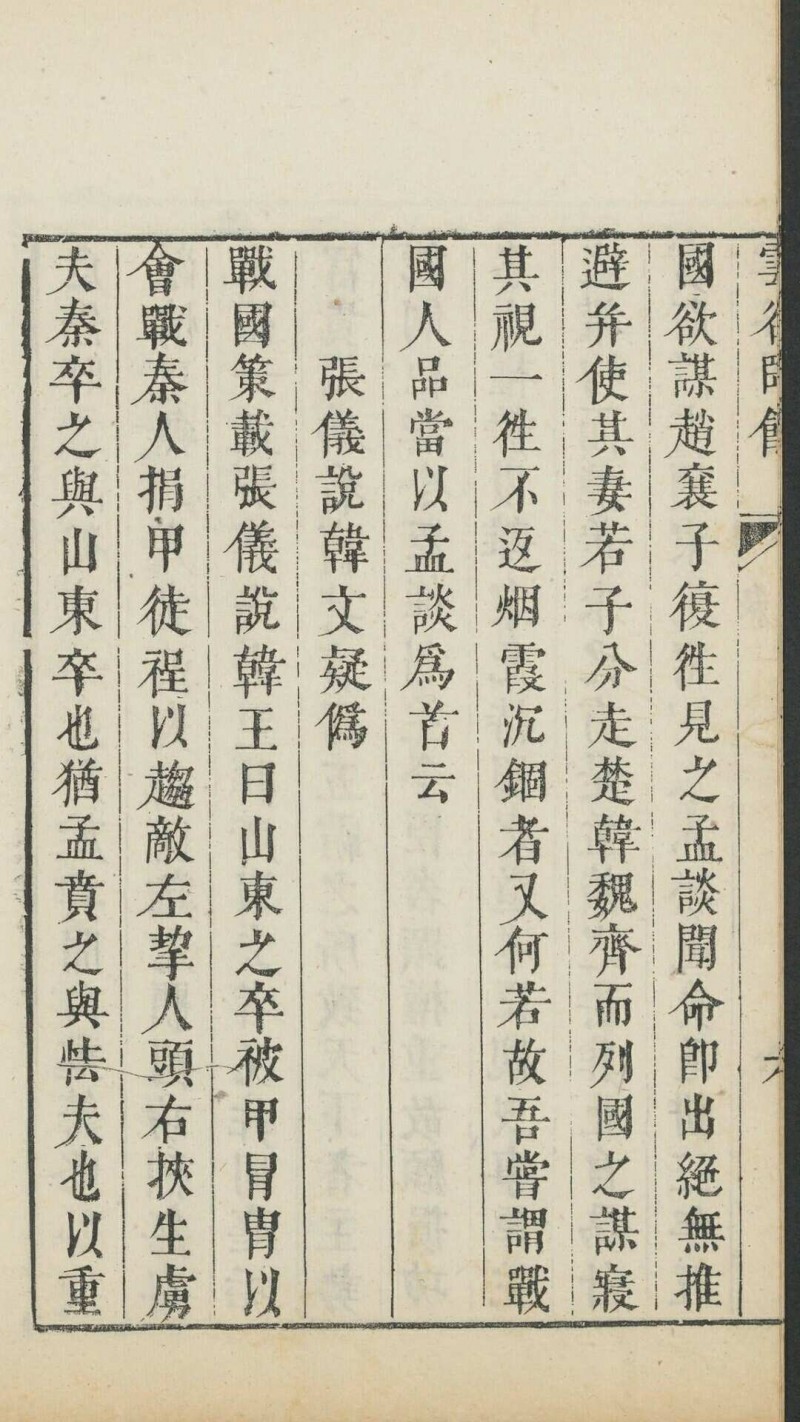 國欲謀趙襄子復徃見之孟談聞命卽出絕無推
避并使其妻若子分走楚韓魏齊而列國之謀寢
其視一徃不返烟霞沉錮者又何若故吾嘗謂戰
國人品當以孟談爲首云
張儀說韓文疑僞
戰國策載張儀說韓王曰山東之卒被甲冒冑以
會戰秦人捐甲徒裎以趨敵左挈人頭右挾生虜
夫秦卒之與山東卒也猶孟賁之與怯夫也以重